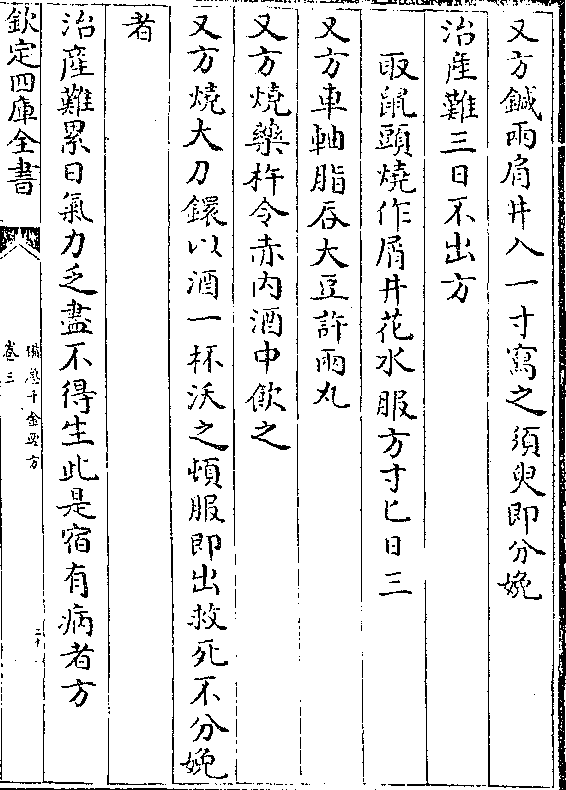 又方鍼兩肩井入一寸寫之須臾即分娩
治產難三日不出方
取鼠頭燒作屑井花水服方寸匕日三
又方車軸脂吞大豆許兩丸
又方燒藥杵令赤內酒中飲之
又方燒大刀鐶以酒一杯沃之頓服即出救死不分娩
者
治產難累日氣力乏盡不得生此是宿有病者方
欽定四庫全書
備急千金要方
卷三